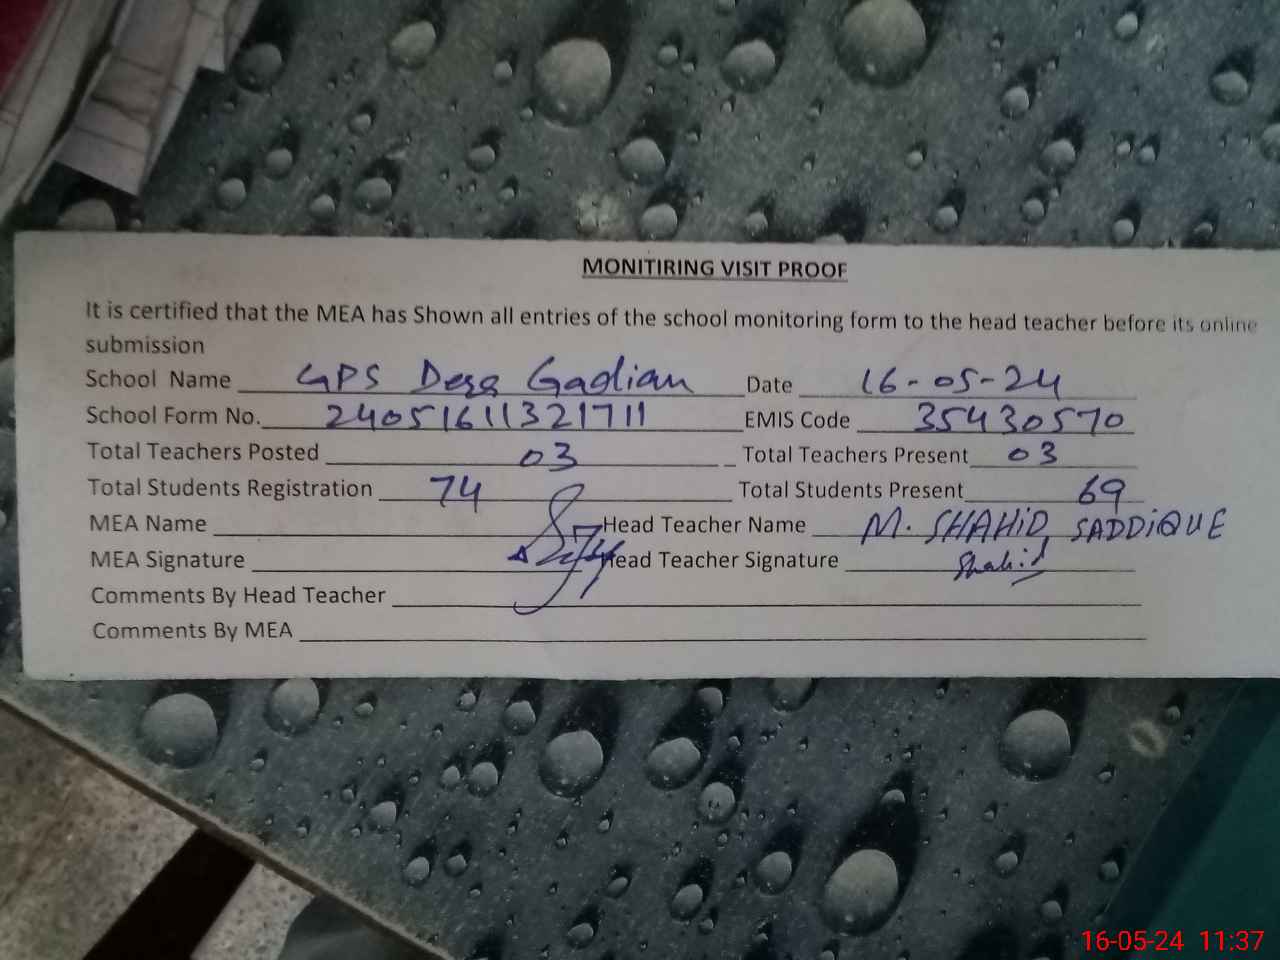 MONITIRING VISIT PROOF
It is certified that the MEA has Shown all entries of the school monitoring form to the head teacher before its online
submission
School Name GPS Dera Gadian Date 16-05-24
School Form No. 24051611321711 EMIS Code 35430570
Total Teachers Posted 03 Total Teachers Present 03
Total Students Registration 74 Total Students Present 69
MEA Name Head Teacher Name M. SHAHID SADDIQUE
MEA Signature Head Teacher Signature Shahid
Comments By Head Teacher
Comments By MEA
16-05-24 11:37